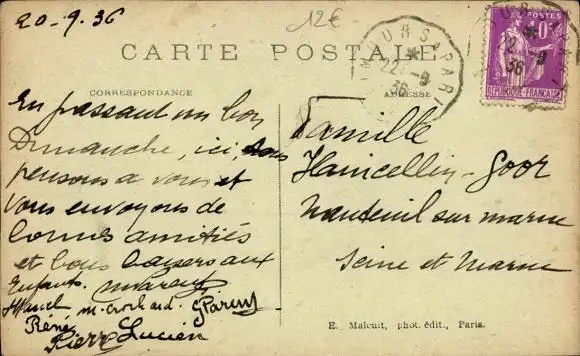 20-9.36
12€
CARTE POSTALE
CORRESPONDANCE
ADRESSE
POSTES
RÉPUBLIQUE FRANÇAISE
URS A PARI
22-9
36
En passant un bon
Dimanche, ici, nous
pensons a vous et
vous envoyons de
bonnes amitiés
et bons baisers aux
Enfants.
m. Crochard. G Parent
René
Pierre Lucien
Famille
Hancellin-Goor
Nanteuil sur marne
Seine et Marne
E. Malcuit, phot. édit., Paris.